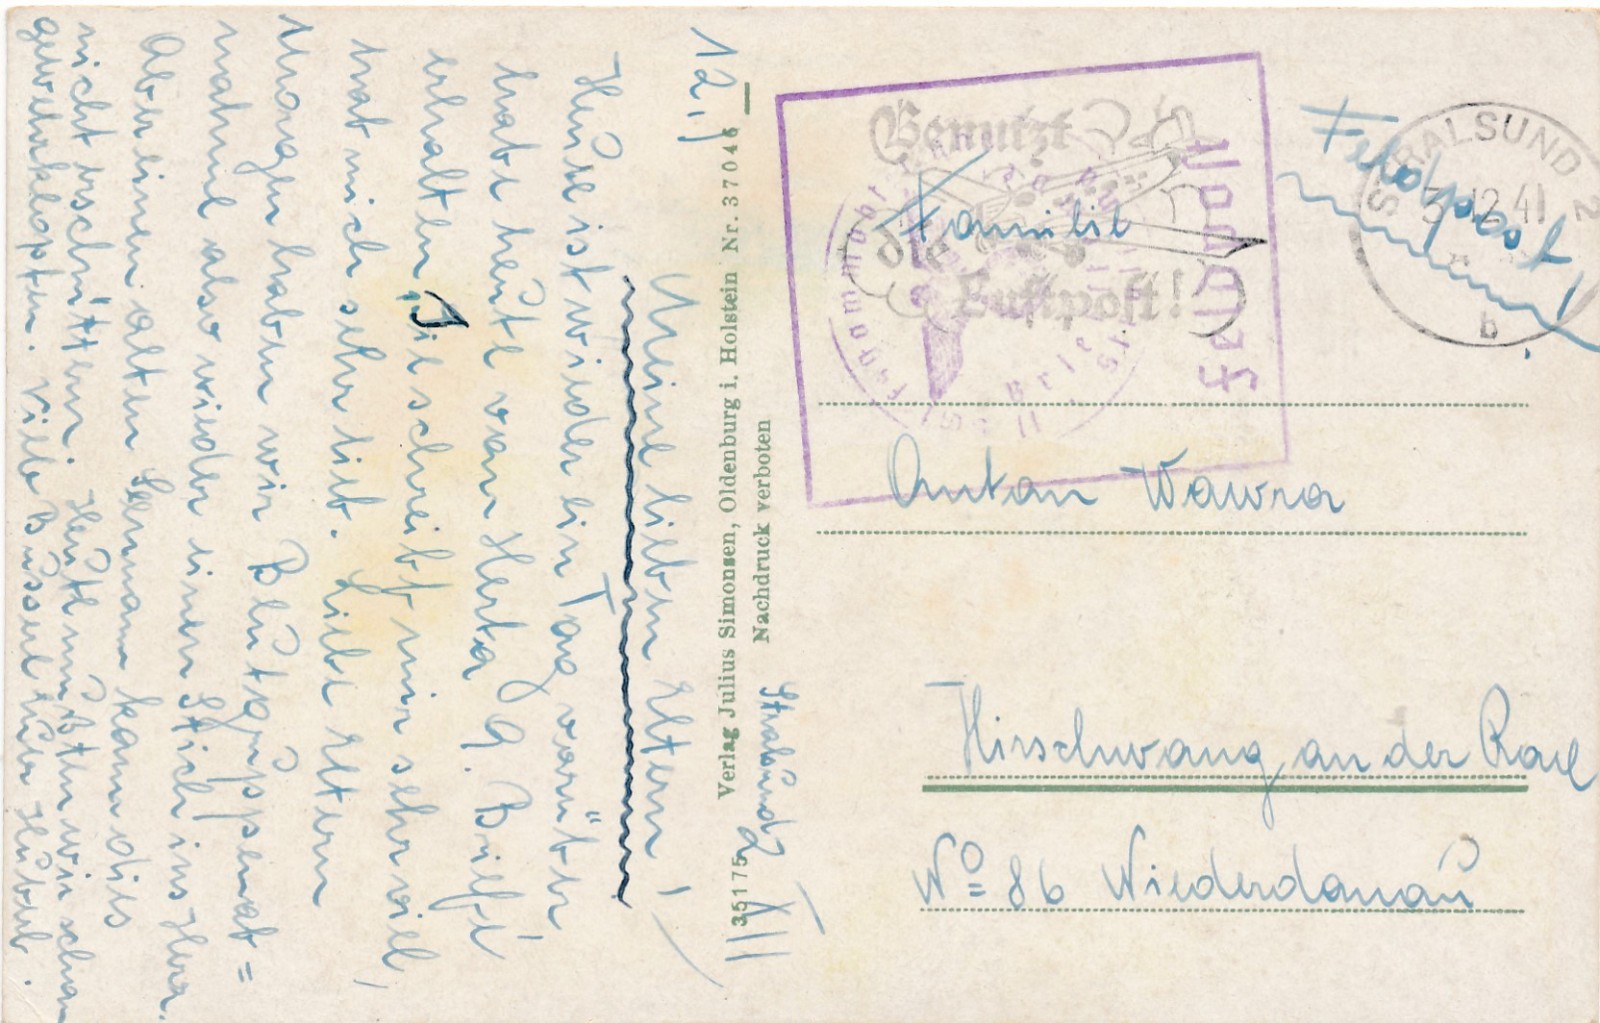 12.)
Stralsund 2 XII
Meine lieben Eltern!
Heute ist wieder ein Tag vorüber
habe heute von Herta 9. Briefe
erhalten. Sie schreibt mir sehr viel,
hat mich sehr lieb. Liebe Eltern
Morgen haben wir Blutgruppenab=
nahme also wieder einen Stich ins Herz.
Aber einen alten Seemann kann dies
nicht erschüttern. Heute mußten wir schon
gewehrklopfen. Viele Bussel Euer Hubert.
Verlag Julius Simonsen, Oldenburg i. Holstein Nr. 37046
35175 Nachdruck verboten
Feldpost!
STRALSUND 2
3.12.41
b
Benutzt
die
Luftpost!
Feldpost
Familie
Anton Wawra
Hirschwang an der Rax
No 86 Niederdonau